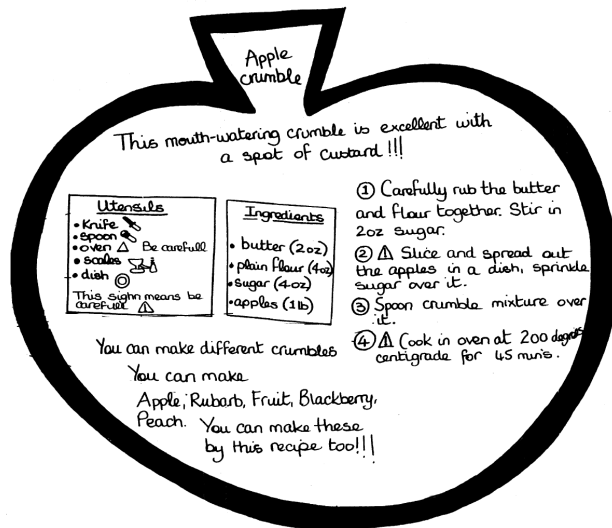 Apple
crumble
This mouth-watering crumble is excellent with
a spot of custard!!!
Utensils
• Knife
• spoon
• oven Be carefull
• scales
• dish
This sighn means be
carefull
Ingredients
• butter (2oz)
• plain flour (4oz)
• sugar (4oz)
• apples (1lb)
① Carefully rub the butter
and flour together. Stir in
2oz sugar.
② Slice and spread out
the apples in a dish, sprinkle
sugar over it.
③ Spoon crumble mixture over
it.
④ Cook in oven at 200 degrees
centigrade for 45 mins.
You can make different crumbles
You can make
Apple, Rubarb, Fruit, Blackberry,
Peach. You can make these
by this recipe too!!!